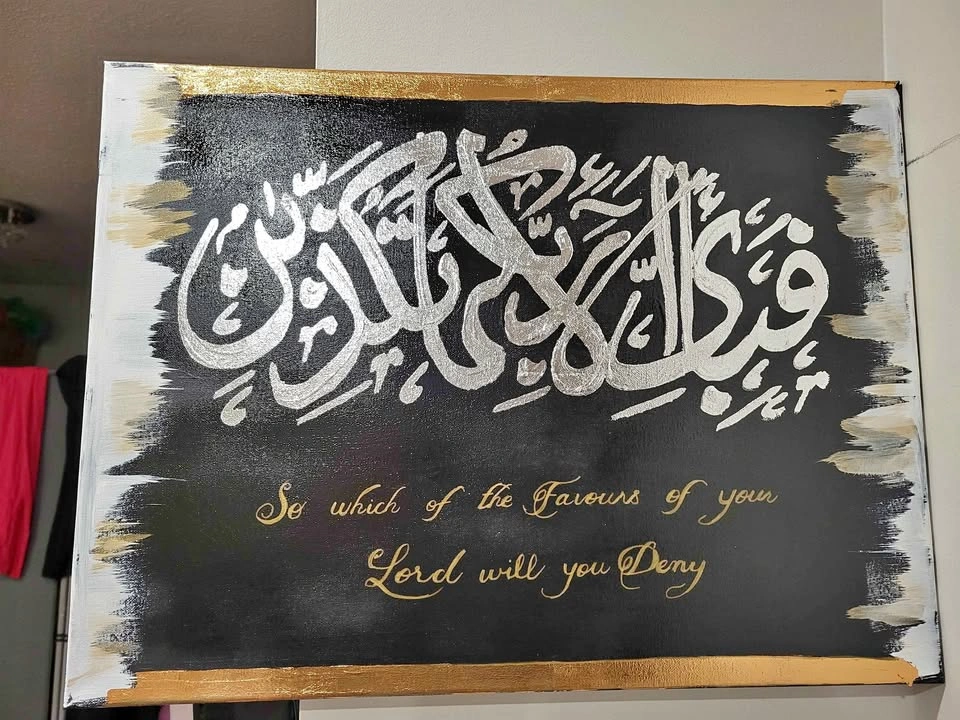 فبأي آلاء ربكما تكذبان
So which of the Favours of your
Lord will you Deny